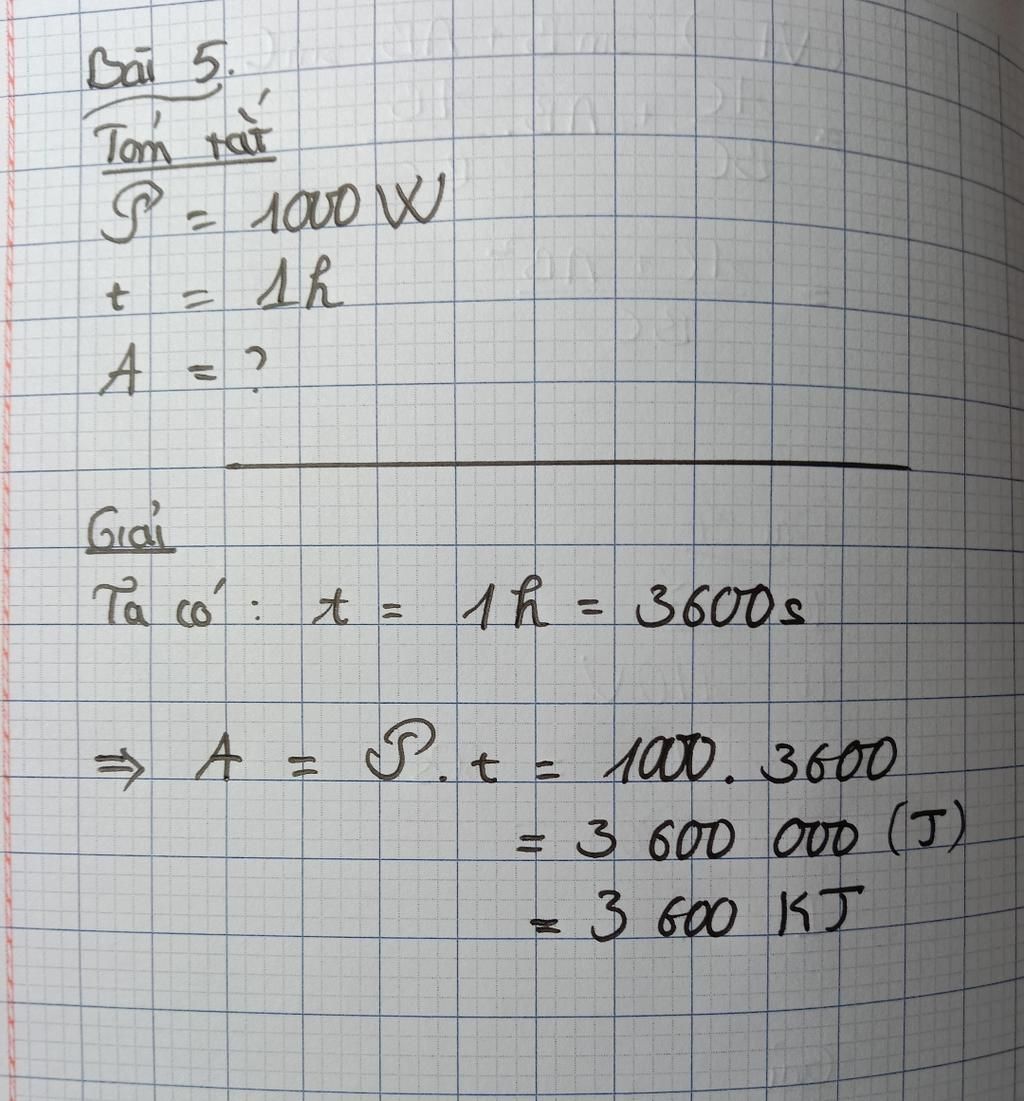 Bài 5.
Tóm tắt
P = 1000 W
t = 1h
A = ?
Giải
Ta có: t = 1h = 3600s
⇒ A = P. t = 1000. 3600
= 3 600 000 (J)
= 3 600 KJ